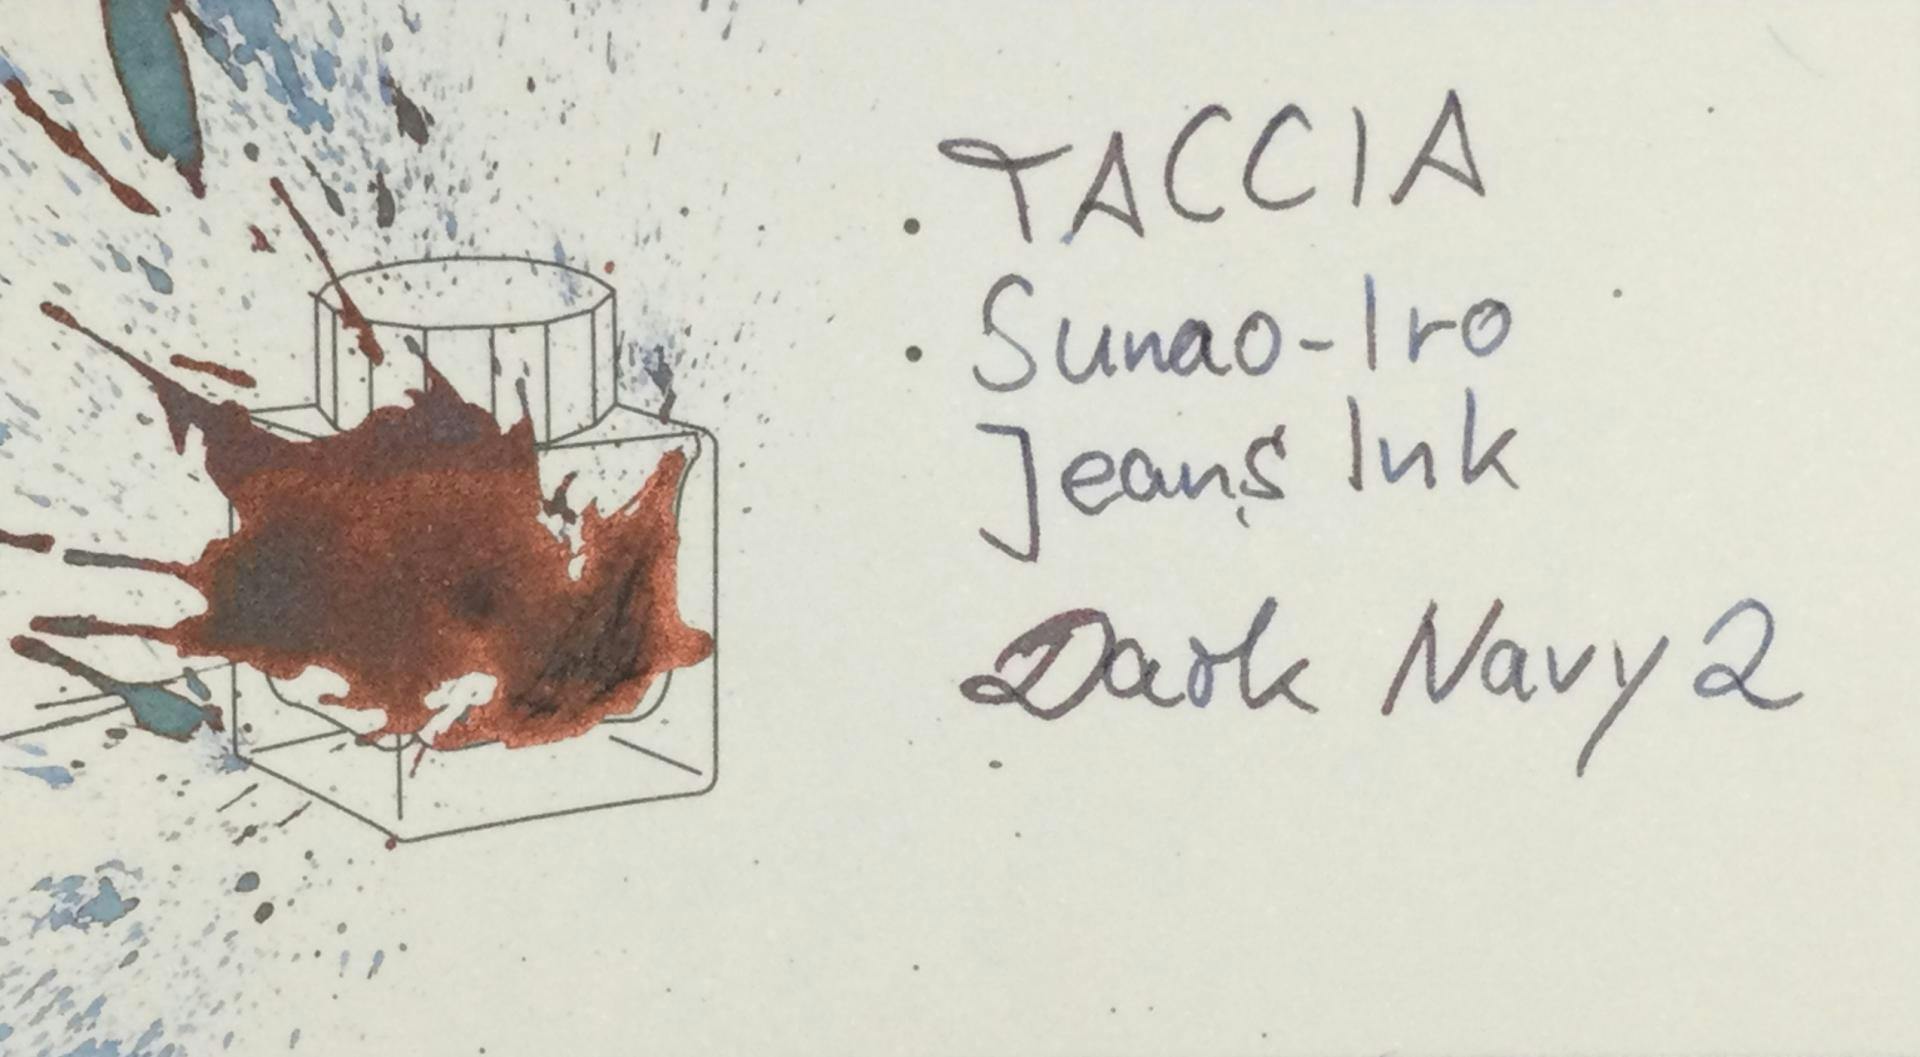 TACCIA
Sunao-Iro
Jeans Ink
Dark Navy 2